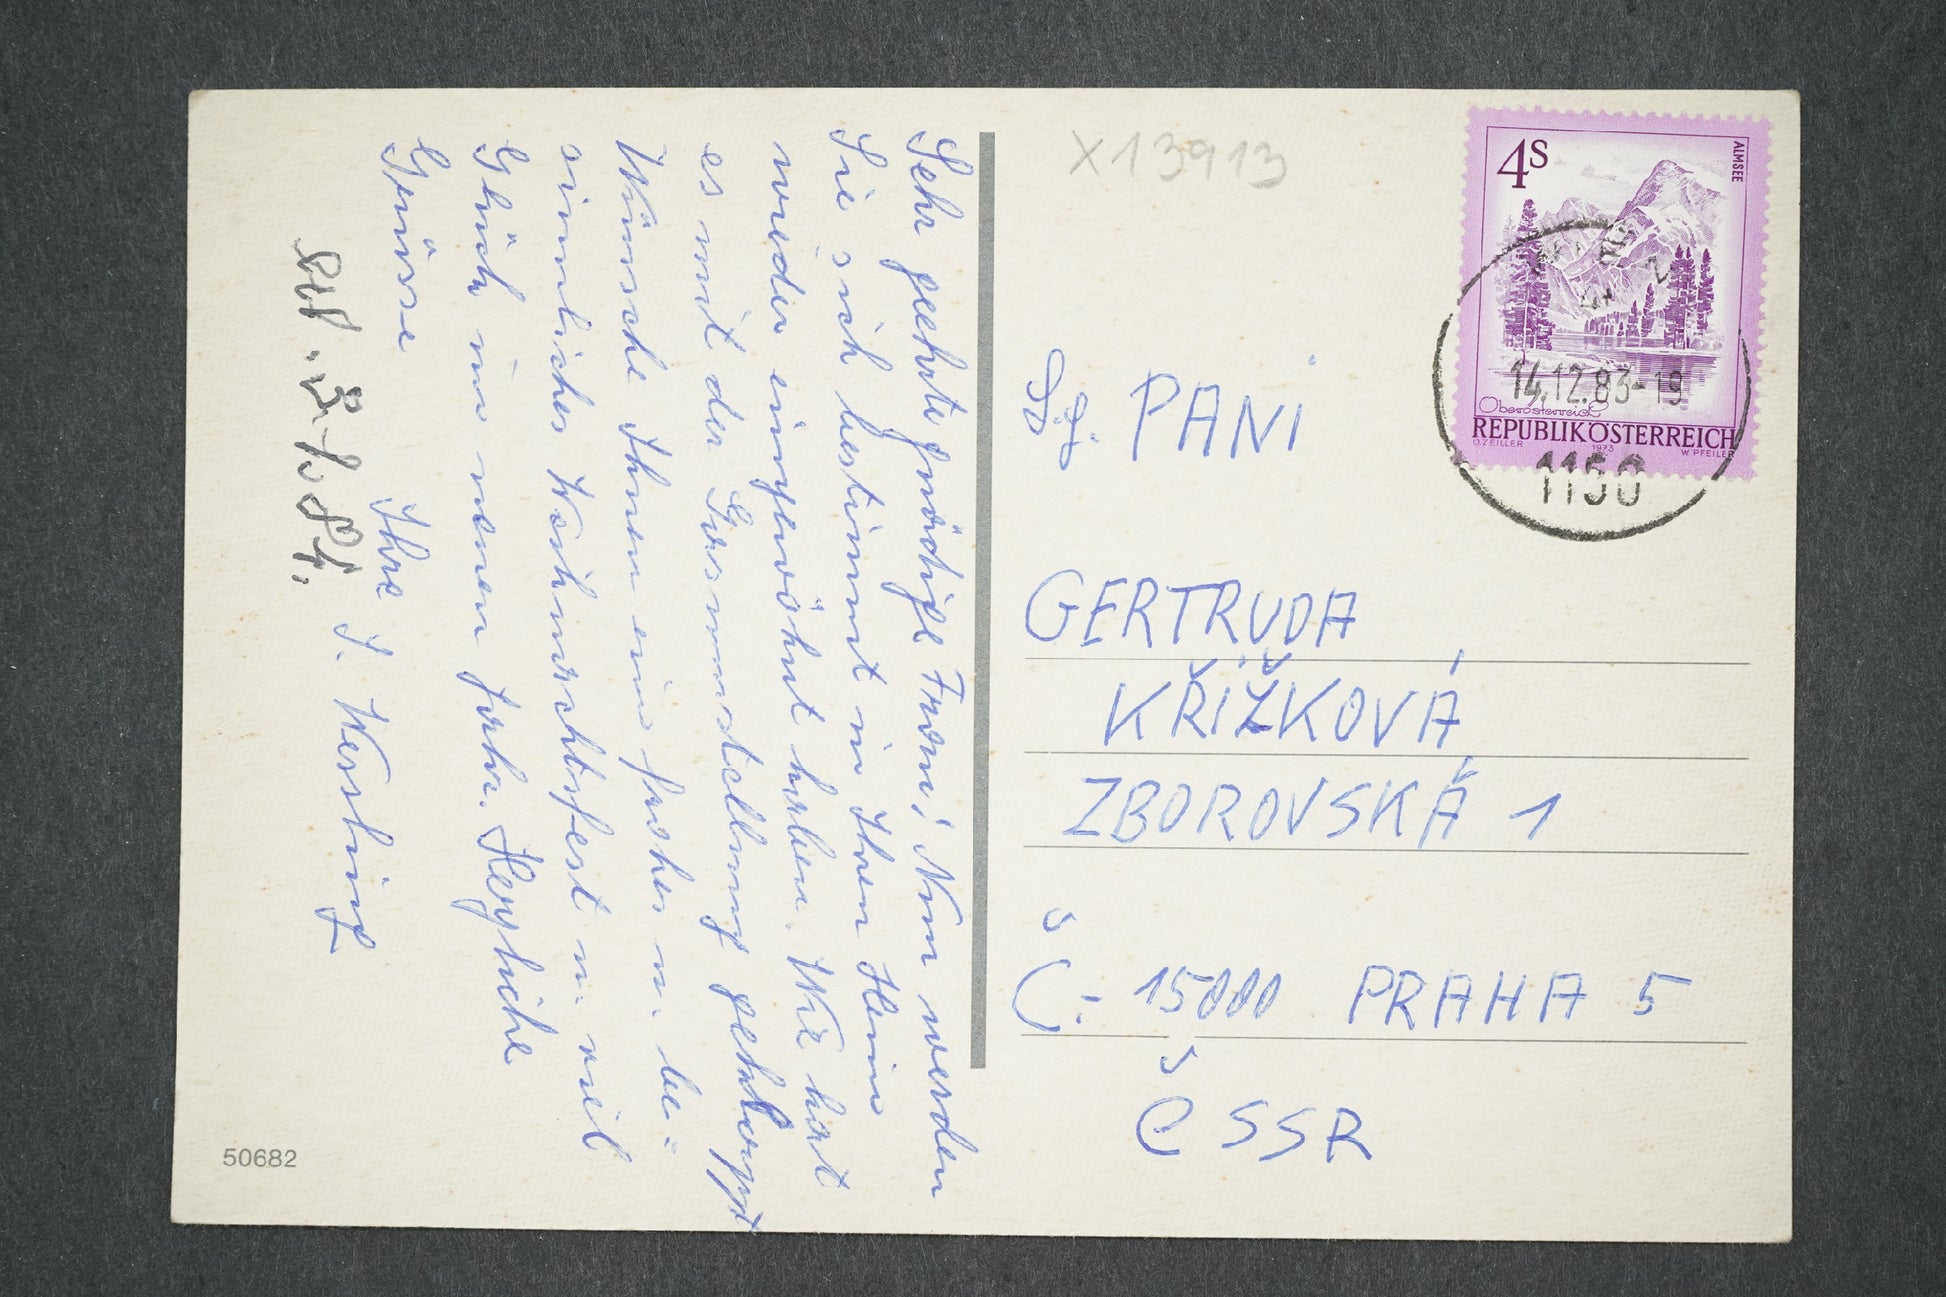 Sehr geehrte gnädige Frau! Nun werden
Sie sich bestimmt in Ihren Heim
wieder eingewöhnt haben. Wie hat
es mit der Gasumstellung geklappt
Wünsche Ihnen ein frohes u. be-
sinnliches Weihnachtsfest u. viel
Glück im neuen Jahr. Herzliche
Grüsse
Ihre
X13913
4S
ALMSEE
WIEN
14.12.83-19
Oberösterreich
REPUBLIK ÖSTERREICH
O.ZEILLER 1973 W PFEILER
1150
PANI
GERTRUDA
KŘÍŽKOVÁ
ZBOROVSKÁ 1
15000 PRAHA 5
ČSSR
50682